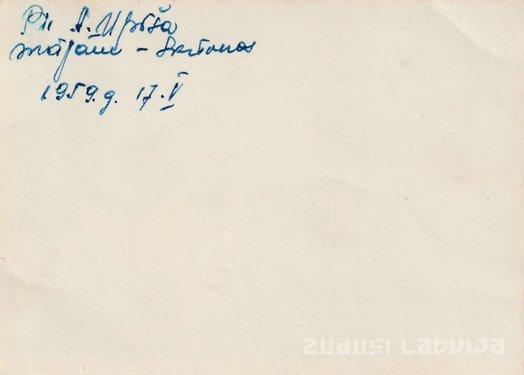 Pie A. Upīša
mājām - Skrīveros
1959.g. 17.V
zudusi Latvija